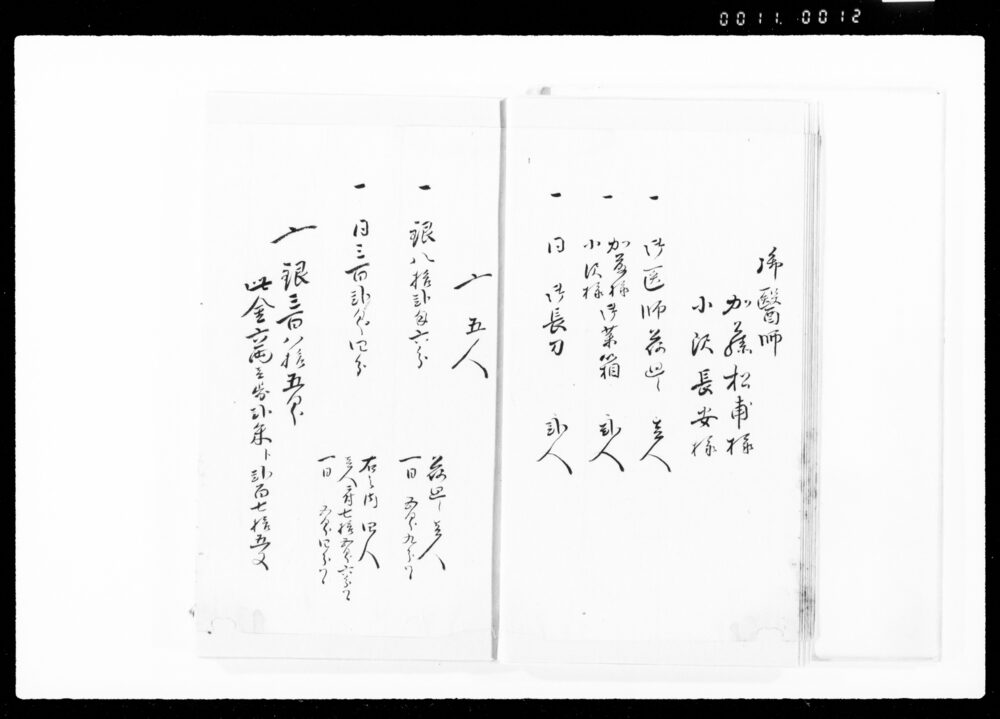 0011.0012
御醫師
加藤松甫様
小沢長安様
一 御医師荷 壱人
一 加藤様
小沢様 御薬箱 弐人
一 同 御長刀 弐人
〆 五人
一 銀八拾弐匁六分
荷 壱人
一日 五匁九分ツヽ
一 同三百弐匁四分
右之内 四人
壱人ニ付七拾五匁六分ツヽ
一日 五匁四分ツヽ
〆 銀三百八拾五匁
此金六両壱歩弐朱ト弐百七拾五文